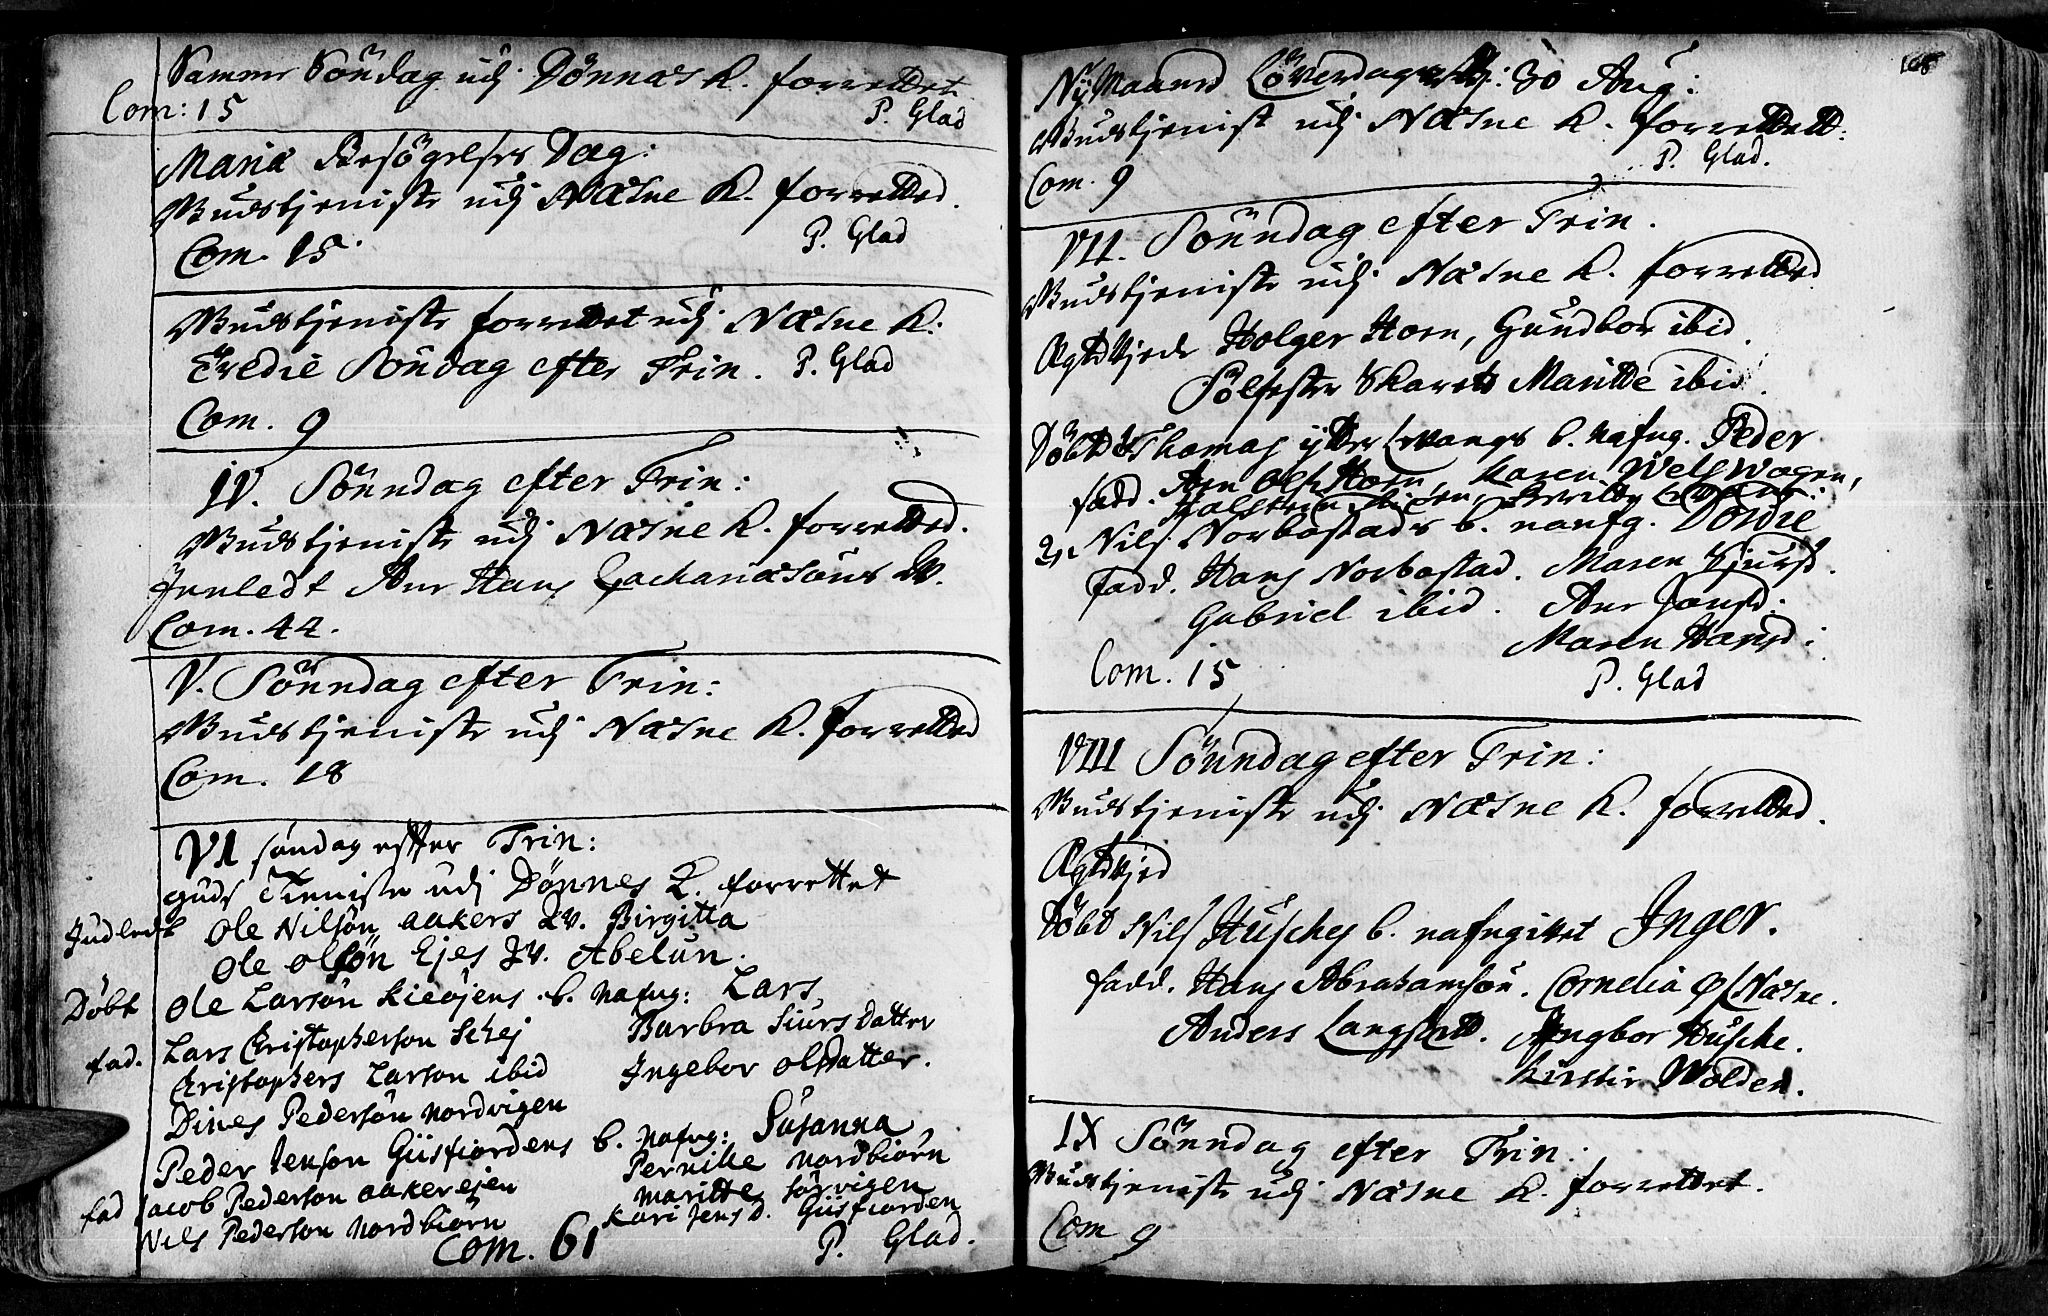 Samme Söndag udj Dönnæs K. forrettet
Com: 15 P. Glad
Mariæ Besögelses Dag:
Gudstjeniste udj Næsne K. forretted.
Com. 15. P. Glad
Gudstjeniste forrettet udj Næsne K:
Tredie Söndag efter Trin. P. Glad
Com. 9
IV. Sönndag efter Trin:
Gudstjeniste udj Næsne K. forretted.
Jnnledt Ane Hans Zachariæsöns W.
Com. 44.
V. Sönndag efter Trin:
Gudstjeniste udj Næsne K. forretted
Com. 18
VI söndag effter Trin:
guds Tieniste udj Dönnes K. forrettet
Indledt Ole Nilsön aakers Qv. Birgitta
Ole olsön Ejes Qv. Abelun.
Döbt Ole Larsön kieöjens b. Nafng: Lars
fad. Lars Christophersøn Schej Barbra Siurs Datter
Christophers Larson ibid Ingebor olsdatter.
Dines Pedersön Nordvigen
Peder Jenson Giisfiordens b. Nafng: Susanna
Pernille Nordbiørn
fad Jacob Pederson aakerejen Maritte sörvigen
Nils Pederson Nordbiørn Kari Jens D. Giisfiorden
Com. 61 P. Glad.
168
NyMaaned Löverdag 30 Aug:
Gudstjenist udj Næsne K. forrettett:
Com. 9 P. Glad.
VII. Sönndag efter Trin.
Gudstjeniste udj Næsne K. forretted
Ægtevjede Holger Horn, Gundbor ibid.
Sölfester Skarets Maritte ibid.
Döbt Thomas ytter b. Nafng. Peder
fadd. Horn, Karen
2, Nils Norbostads b. nanfg. Dordie
fadd. Hans Norbostad. Maren Sjursd.
Gabriel ibid. Ane Jonsd:
Maren Hansd:
Com. 15 P. Glad
VIII Sönndag efter Trin:
Gudstjeniste udj Næsne K. forretted.
Ægtevjed
Döbt Nils Husches b. nafngivet Inger.
fadd. Hans Abrahamsön. Cornelia Næsne.
Anders Langset. Angbor Husche.
Kirstin Wolden.
IX Sönndag efter Trin:
Gudstjeniste udj Næsne K. forrettet.
Com 9